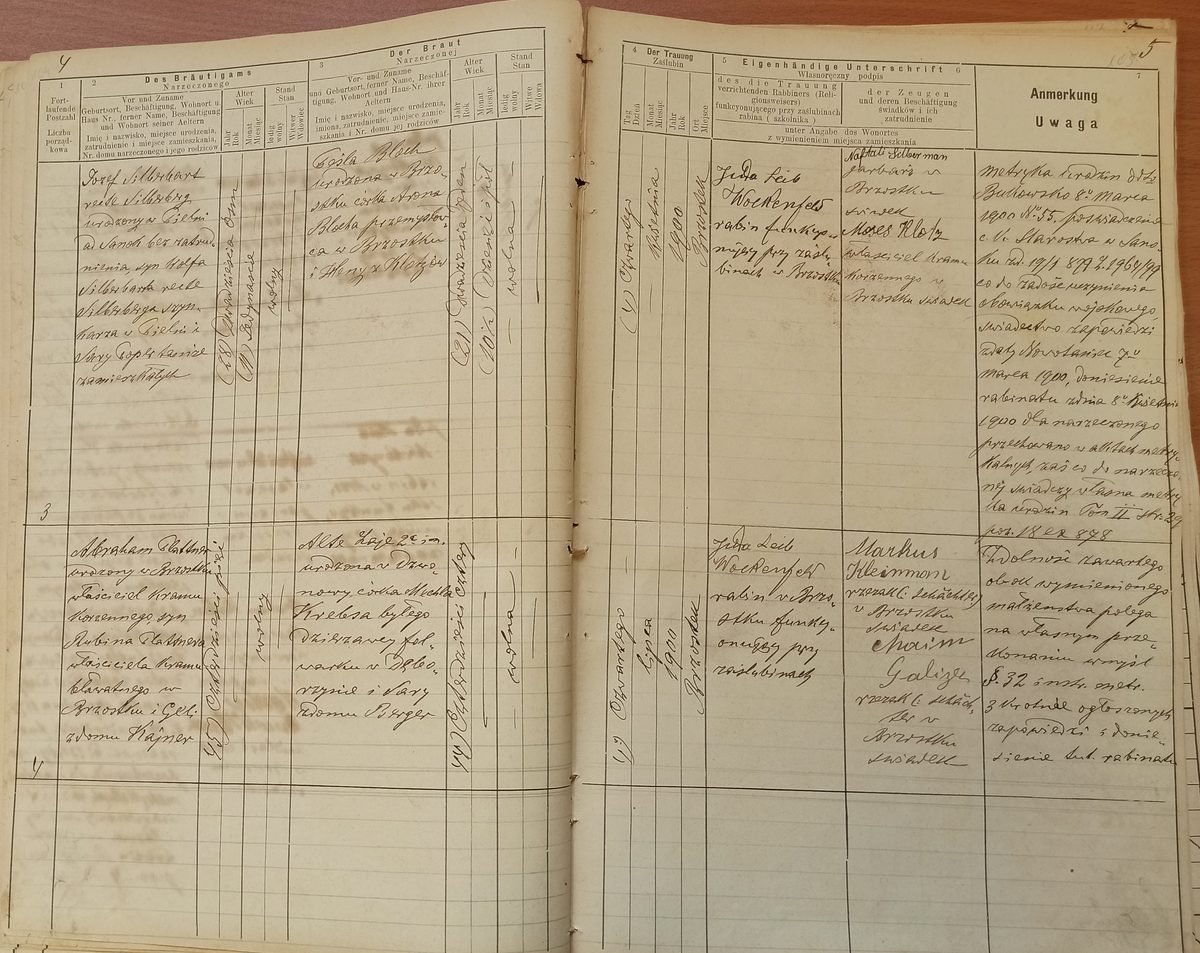 4
1
Fort-
laufende
Postzahl
Liczba
porząd-
kowa
2
Des Bräutigams
Narzeczonego
Vor- und Zuname
Geburtsort, Beschäftigung, Wohnort u.
Haus Nr., ferner Name, Beschäftigung
und Wohnort seiner Aeltern
Imię i nazwisko, miejsce urodzenia,
zatrudnienie i miejsce zamieszkania,
Nr. domu narzeczonego i jego rodziców
Alter
Wiek
Jahr
Rok
Monat
Miesiąc
Stand
Stan
ledig
wolny
Witwer
Wdowiec
3
Der Braut
Narzeczonej
Vor- und Zuname
und Geburtsort, ferner Name, Beschäf-
tigung, Wohnort und Haus-Nr. ihrer
Aeltern
Imię i nazwisko, miejsce urodzenia,
imiona, zatrudnienie, miejsce zamie-
szkania i Nr. domu jej rodziców
Alter
Wiek
Jahr
Rok
Monat
Miesiąc
Stand
Stan
ledig
wolny
Witwe
Wdowa
3
Josef Silberbart
recte Silberberg
urodzony w Pielni
ad Sanok bez zatrud-
nienia syn Wolfa
Silberbarta recte
Silberberga szyn-
karza w Pielni i
Sary Töpler tamże
zamieszkałych
(28) Dwadzieścia ośm
(11) Jedynaście
wolny
Cesla Bloch
urodzona w Brzo-
stku córka Arona
Blocha przemysłow
ca w Brzostku
i Heny z Klotzów
(21) Dwadzieścia jeden
(10½) Dziesięć i pół
wolna
4
Abraham Plattner
urodzony w Brzostku
właściciel kramu
korzennego syn
Rubina Plattnera
właściciela kramu
bławatnego w
Brzostku i Gitli
z domu Hajner
45) Czterdzieści pięć
wolny
Alte Laje 2ch im.
urodzona w Dzwo-
nowy córka Michla
Krebsa byłego
dzierżawcy fol-
warku w Dębo-
rzynie i Sary
z domu Berger
44) Czterdzieści cztery
wolna
5
4
Der Trauung
Zaślubin
Tag
Dzień
Monat
Miesiąc
Jahr
Rok
Ort
Miejsce
5 Eigenhändige Unterschrift 6
Własnoręczny podpis
des die Trauung
verrichtenden Rabbiners (Reli-
gionsweisers)
funkcyonującego przy zaślubinach
rabina ( szkolnika )
der Zeugen
und deren Beschäftigung
świadków i ich
zatrudnienie
unter Angabe des Wohnortes
z wymienieniem miejsca zamieszkania
7
Anmerkung
Uwaga
(4) Czwartego
Kwietnia
1900
Brzostek
Juda Leib
Wockenfeld
rabin funkcyo-
nujący przy zaślu
binach w Brzostku
Naftali Silberman
garbarz w
Brzostku
świadek
Mozes Klotz
właściciel kramu
korzennego w
Brzostku świadek
metryka urodzin dtto
Bukowsko 8go Marca
1900 No 55. poświadczenie
c. k. Starostwa w Sano-
ku
co do zadość uczynienia
obowiązku wojskowego,
świadectwo zapowiedzi
z daty Nowotaniec 7go
marca 1900, doniesienie
rabinatu z dnia 8go Kwietnia
1900 dla narzeczonego
przechowano w aktach metry-
kalnych, zaś co do narzeczo-
nej świadczy własna metry
ka urodzin Tom II str. 29
poz. 18 ex 878
4) Czwartego
lipca
1900
Brzostek
Juda Leib
Wockenfeld
rabin w Brzo-
stku funkcy-
onujący przy
zaślubinach
Markus
Kleinman
rzezak (: schächter)
w Brzostku
świadek
Chaim
Galizer
rzezak (: schäch-
ter w
Brzostku
świadek
Zdolność zawartego
obok wymienionego
małżeństwa polega
na własnym prze-
konaniu w myśl
§. 32 instr. metr.
3 krotnie ogłoszonych
zapowiedzi i donie-
sienie tut. rabinatu